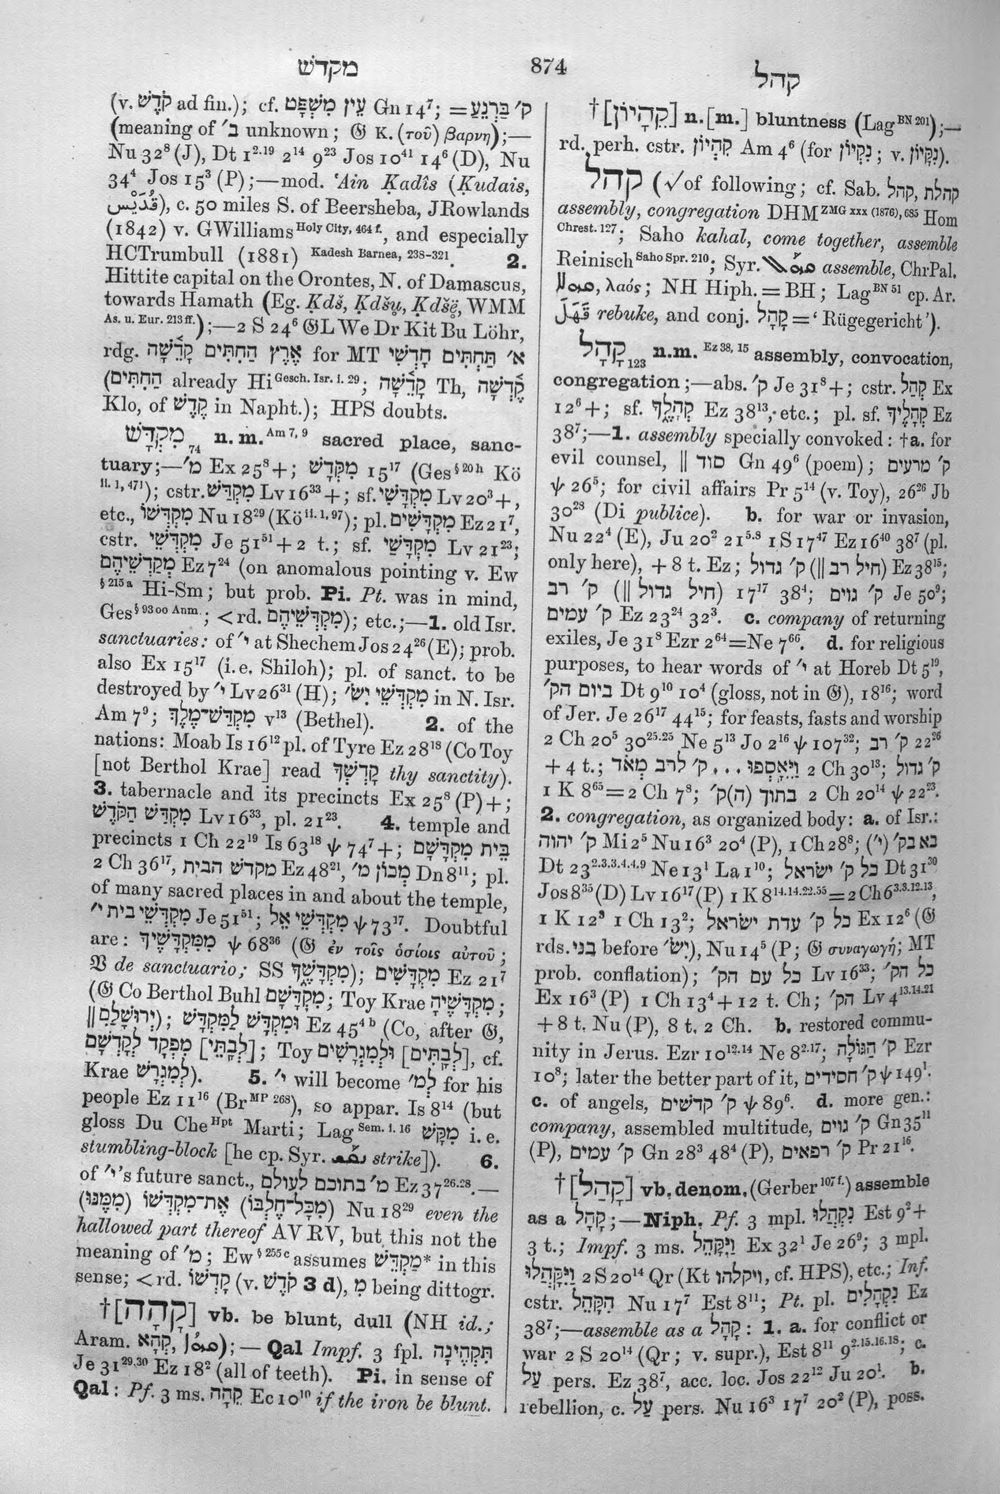 מקדש
874
קהל
(v. קֹדֶשׁ ad fin.); cf. עֵין מִשְׁפָּט Gn 14⁷; = ק׳ בַּרְנֵעַ
(meaning of ב׳ unknown; 𝔊 Κ. (τοῦ) βαρνη);—
Nu 32⁸ (J), Dt 1²·¹⁹ 2¹⁴ 9²³ Jos 10⁴¹ 14⁶ (D), Nu
34⁴ Jos 15³ (P);—mod. ʿAin Ḳadîs (Ḳudais,
قُدَيْس), c. 50 miles S. of Beersheba, JRowlands
(1842) v. GWilliams Holy City, 464 f., and especially
HCTrumbull (1881) Kadesh Barnea, 238-321. 2.
Hittite capital on the Orontes, N. of Damascus,
towards Hamath (Eg. Ḳdš, Ḳdšụ, Ḳdšë, WMM
As. u. Eur. 213 ff.);—2 S 24⁶ 𝔊L We Dr Kit Bu Löhr,
rdg. אֶרֶץ הַחִתִּים קָדֵ֫שָׁה for MT א׳ תַּחְתִּים חָדְשִׁי
(הַחִתִּים already Hi Gesch. Isr. i. 29; קָדֵ֫שָׁה Th, קֶ֫דְשָׁה
Klo, of קֶדֶשׁ in Napht.); HPS doubts.
מִקְדָּשׁ 74 n.m. Am 7, 9 sacred place, sanc-
tuary;—מ׳ Ex 25⁸+; מִקְּדָשׁ 15¹⁷ (Ges § 20 h Kö
ii. 1, 471); cstr. מִקְדַּשׁ Lv 16³³+; sf. מִקְדָּשִׁי Lv 20³+,
etc., מִקְדְּשׁוֹ Nu 18²⁹ (Kö ii. 1, 97); pl. מִקְדָּשִׁים Ez 21⁷,
cstr. מִקְדְּשֵׁי Je 51⁵¹ + 2 t.; sf. מִקְדָּשַׁי Lv 21²³;
מְקַדְשֵׁיהֶם Ez 7²⁴ (on anomalous pointing v. Ew
§ 215 a Hi-Sm; but prob. Pi. Pt. was in mind,
Ges § 93 oo Anm.; < rd. מִקְדְּשֵׁיהֶם); etc.;—1. old Isr.
sanctuaries: of י׳ at Shechem Jos 24²⁶ (E); prob.
also Ex 15¹⁷ (i.e. Shiloh); pl. of sanct. to be
destroyed by י׳ Lv 26³¹ (H); מִקְדְּשֵׁי יִשׂ׳ in N. Isr.
Am 7⁹; מִקְדַּשׁ־מֶלֶךְ v¹³ (Bethel). 2. of the
nations: Moab Is 16¹² pl. of Tyre Ez 28¹⁸ (Co Toy
[not Berthol Krae] read קָדְשֶׁךָ thy sanctity).
3. tabernacle and its precincts Ex 25⁸ (P)+;
מִקְדַּשׁ הַקֹּדֶשׁ Lv 16³³, pl. 21²³. 4. temple and
precincts 1 Ch 22¹⁹ Is 63¹⁸ ψ 74⁷+; בֵּית מִקְדָּשָׁם
2 Ch 36¹⁷, מקדש הבית Ez 48²¹, מְכוֹן מ׳ Dn 8¹¹; pl.
of many sacred places in and about the temple,
מִקְדְּשֵׁי בית י׳ Je 51⁵¹; מִקְדְּשֵׁי אֵל ψ 73¹⁷. Doubtful
are: מִמִּקְדָּשֶׁיךָ ψ 68³⁶ (𝔊 ἐν τοῖς ὁσίοις αὐτοῦ;
𝔙 de sanctuario; SS מִמִּקְדָּשֶׁךָ); מִקְדָּשִׁים Ez 21⁷
(𝔊 Co Berthol Buhl מִקְדָּשָׁם; Toy Krae מִקְדָּשֶׁיהָ;
‖ יְרוּשָׁלַםִ); וּמִקְדָּשׁ לַמִּקְדָּשׁ Ez 45⁴ᵇ (Co, after 𝔊,
מִפְקָד לְקָדְשָׁם [לְבָתֵּי]; Toy וּלְמִגְרָשִׁים [לְבָתִּים], cf.
Krae לְמִגְרָשׁ). 5. י׳ will become למ׳ for his
people Ez 11¹⁶ (Br MP 268), so appar. Is 8¹⁴ (but
gloss Du Che Hpt Marti; Lag Sem. i. 16 מִקָּשׁ i.e.
stumbling-block [he cp. Syr. ܢܩܫ strike]). 6.
of י׳'s future sanct., מ׳ בתוכם לעולם Ez 37²⁶·²⁸.—
(מִכָּל־חֶלְבּוֹ) אֶת־מִקְדְּשׁוֹ (מִמֶּנּוּ) Nu 18²⁹ even the
hallowed part thereof AV RV, but this not the
meaning of מ׳; Ew § 255 c assumes מִקְדֵּשׁ* in this
sense; < rd. קָדְשׁוֹ (v. קֹדֶשׁ 3 d), מִ being dittogr.
†[קָהָה] vb. be blunt, dull (NH id.;
Aram. קְהָא, ܩܗܐ);—Qal Impf. 3 fpl. תִּקְהֶינָה
Je 31²⁹·³⁰ Ez 18² (all of teeth). Pi. in sense of
Qal: Pf. 3 ms. קֵהָה Ec 10¹⁰ if the iron be blunt.
†[קֵהָיוֹן] n.[m.] bluntness (Lag BN 201);—
rd. perh. cstr. קִהְיוֹן Am 4⁶ (for נִקְיוֹן; v. נִקָּיוֹן).
קהל (√ of following; cf. Sab. קהל, קהלת
assembly, congregation DHM ZMG xxx (1876), 685 Hom
Chrest. 127; Saho kahal, come together, assemble
Reinisch Saho Spr. 210; Syr. assemble, ChrPal.
λαός; NH Hiph. = BH; Lag BN 51 cp. Ar.
قَهَلَ rebuke, and conj. קָהָל = ‘Rügegericht’).
קָהָל 123 n.m. Ez 38, 15 assembly, convocation,
congregation;—abs. ק׳ Je 31⁸+; cstr. קְהַל Ex
12⁶+; sf. קְהָלֶךָ Ez 38¹³, etc.; pl. sf. קְהָלֶיךָ Ez
38⁷;—1. assembly specially convoked: †a. for
evil counsel, ‖ סוד Gn 49⁶ (poem); ק׳ מרעים
ψ 26⁵; for civil affairs Pr 5¹⁴ (v. Toy), 26²⁶ Jb
30²⁸ (Di publice). b. for war or invasion,
Nu 22⁴ (E), Ju 20² 21⁵·⁸ 1 S 17⁴⁷ Ez 16⁴⁰ 38⁷ (pl.
only here), + 8 t. Ez; ק׳ גדול (‖ חיל רב) Ez 38¹⁵;
ק׳ רב (‖ חיל גדול) 17¹⁷ 38⁴; ק׳ גוים Je 50⁹;
ק׳ עמים Ez 23²⁴ 32³. c. company of returning
exiles, Je 31⁸ Ezr 2⁶⁴ = Ne 7⁶⁶. d. for religious
purposes, to hear words of י׳ at Horeb Dt 5¹⁹,
ביום הק׳ Dt 9¹⁰ 10⁴ (gloss, not in 𝔊), 18¹⁶; word
of Jer. Je 26¹⁷ 44¹⁵; for feasts, fasts and worship
2 Ch 20⁵ 30²⁵·²⁵ Ne 5¹³ Jo 2¹⁶ ψ 107³²; ק׳ רב 22²⁶
+ 4 t.; וַיֵּאָסְפוּ ... ק׳ לרב מְאֹד 2 Ch 30¹³; ק׳ גדול
1 K 8⁶⁵ = 2 Ch 7⁸; בתוך (ה)ק׳ 2 Ch 20¹⁴ ψ 22²³.
2. congregation, as organized body: a. of Isr.:
ק׳ יהוה Mi 2⁵ Nu 16³ 20⁴ (P), 1 Ch 28⁸; בא בק׳ (י׳)
Dt 23²·³·³·⁴·⁴·⁹ Ne 13¹ La 1¹⁰; כל ק׳ ישראל Dt 31³⁰
Jos 8³⁵ (D) Lv 16¹⁷ (P) 1 K 8¹⁴·¹⁴·²²·⁵⁵ = 2 Ch 6³·³·¹²·¹³,
1 K 12³ 1 Ch 13²; כל ק׳ עדת ישראל Ex 12⁶ (𝔊
rds. בני before יש׳), Nu 14⁵ (P; 𝔊 συναγωγή; MT
prob. conflation); כל עם הק׳ Lv 16³³; כל הק׳
Ex 16³ (P) 1 Ch 13⁴ + 12 t. Ch; הק׳ Lv 4¹³·¹⁴·²¹
+ 8 t. Nu (P), 8 t. 2 Ch. b. restored commu-
nity in Jerus. Ezr 10¹²·¹⁴ Ne 8²·¹⁷; ק׳ הַגּוֹלָה Ezr
10⁸; later the better part of it, ק׳ חסידים ψ 149¹.
c. of angels, ק׳ קדשים ψ 89⁶. d. more gen.:
company, assembled multitude, ק׳ גוים Gn 35¹¹
(P), ק׳ עמים Gn 28³ 48⁴ (P), ק׳ רפאים Pr 21¹⁶.
†[קָהַל] vb. denom. (Gerber 107 f.) assemble
as a קָהָל;—Niph. Pf. 3 mpl. נִקְהֲלוּ Est 9²+
3 t.; Impf. 3 ms. וַיִּקָּהֵל Ex 32¹ Je 26⁹; 3 mpl.
וַיִּקָּהֲלוּ 2 S 20¹⁴ Qr (Kt ויקלהו, cf. HPS), etc.; Inf.
cstr. הִקָּהֵל Nu 17⁷ Est 8¹¹; Pt. pl. נִקְהָלִים Ez
38⁷;—assemble as a קָהָל: 1. a. for conflict or
war 2 S 20¹⁴ (Qr; v. supr.), Est 8¹¹ 9²·¹⁵·¹⁶·¹⁸; c.
עַל pers. Ez 38⁷, acc. loc. Jos 22¹² Ju 20¹. b.
rebellion, c. עַל pers. Nu 16³ 17⁷ 20² (P), poss.